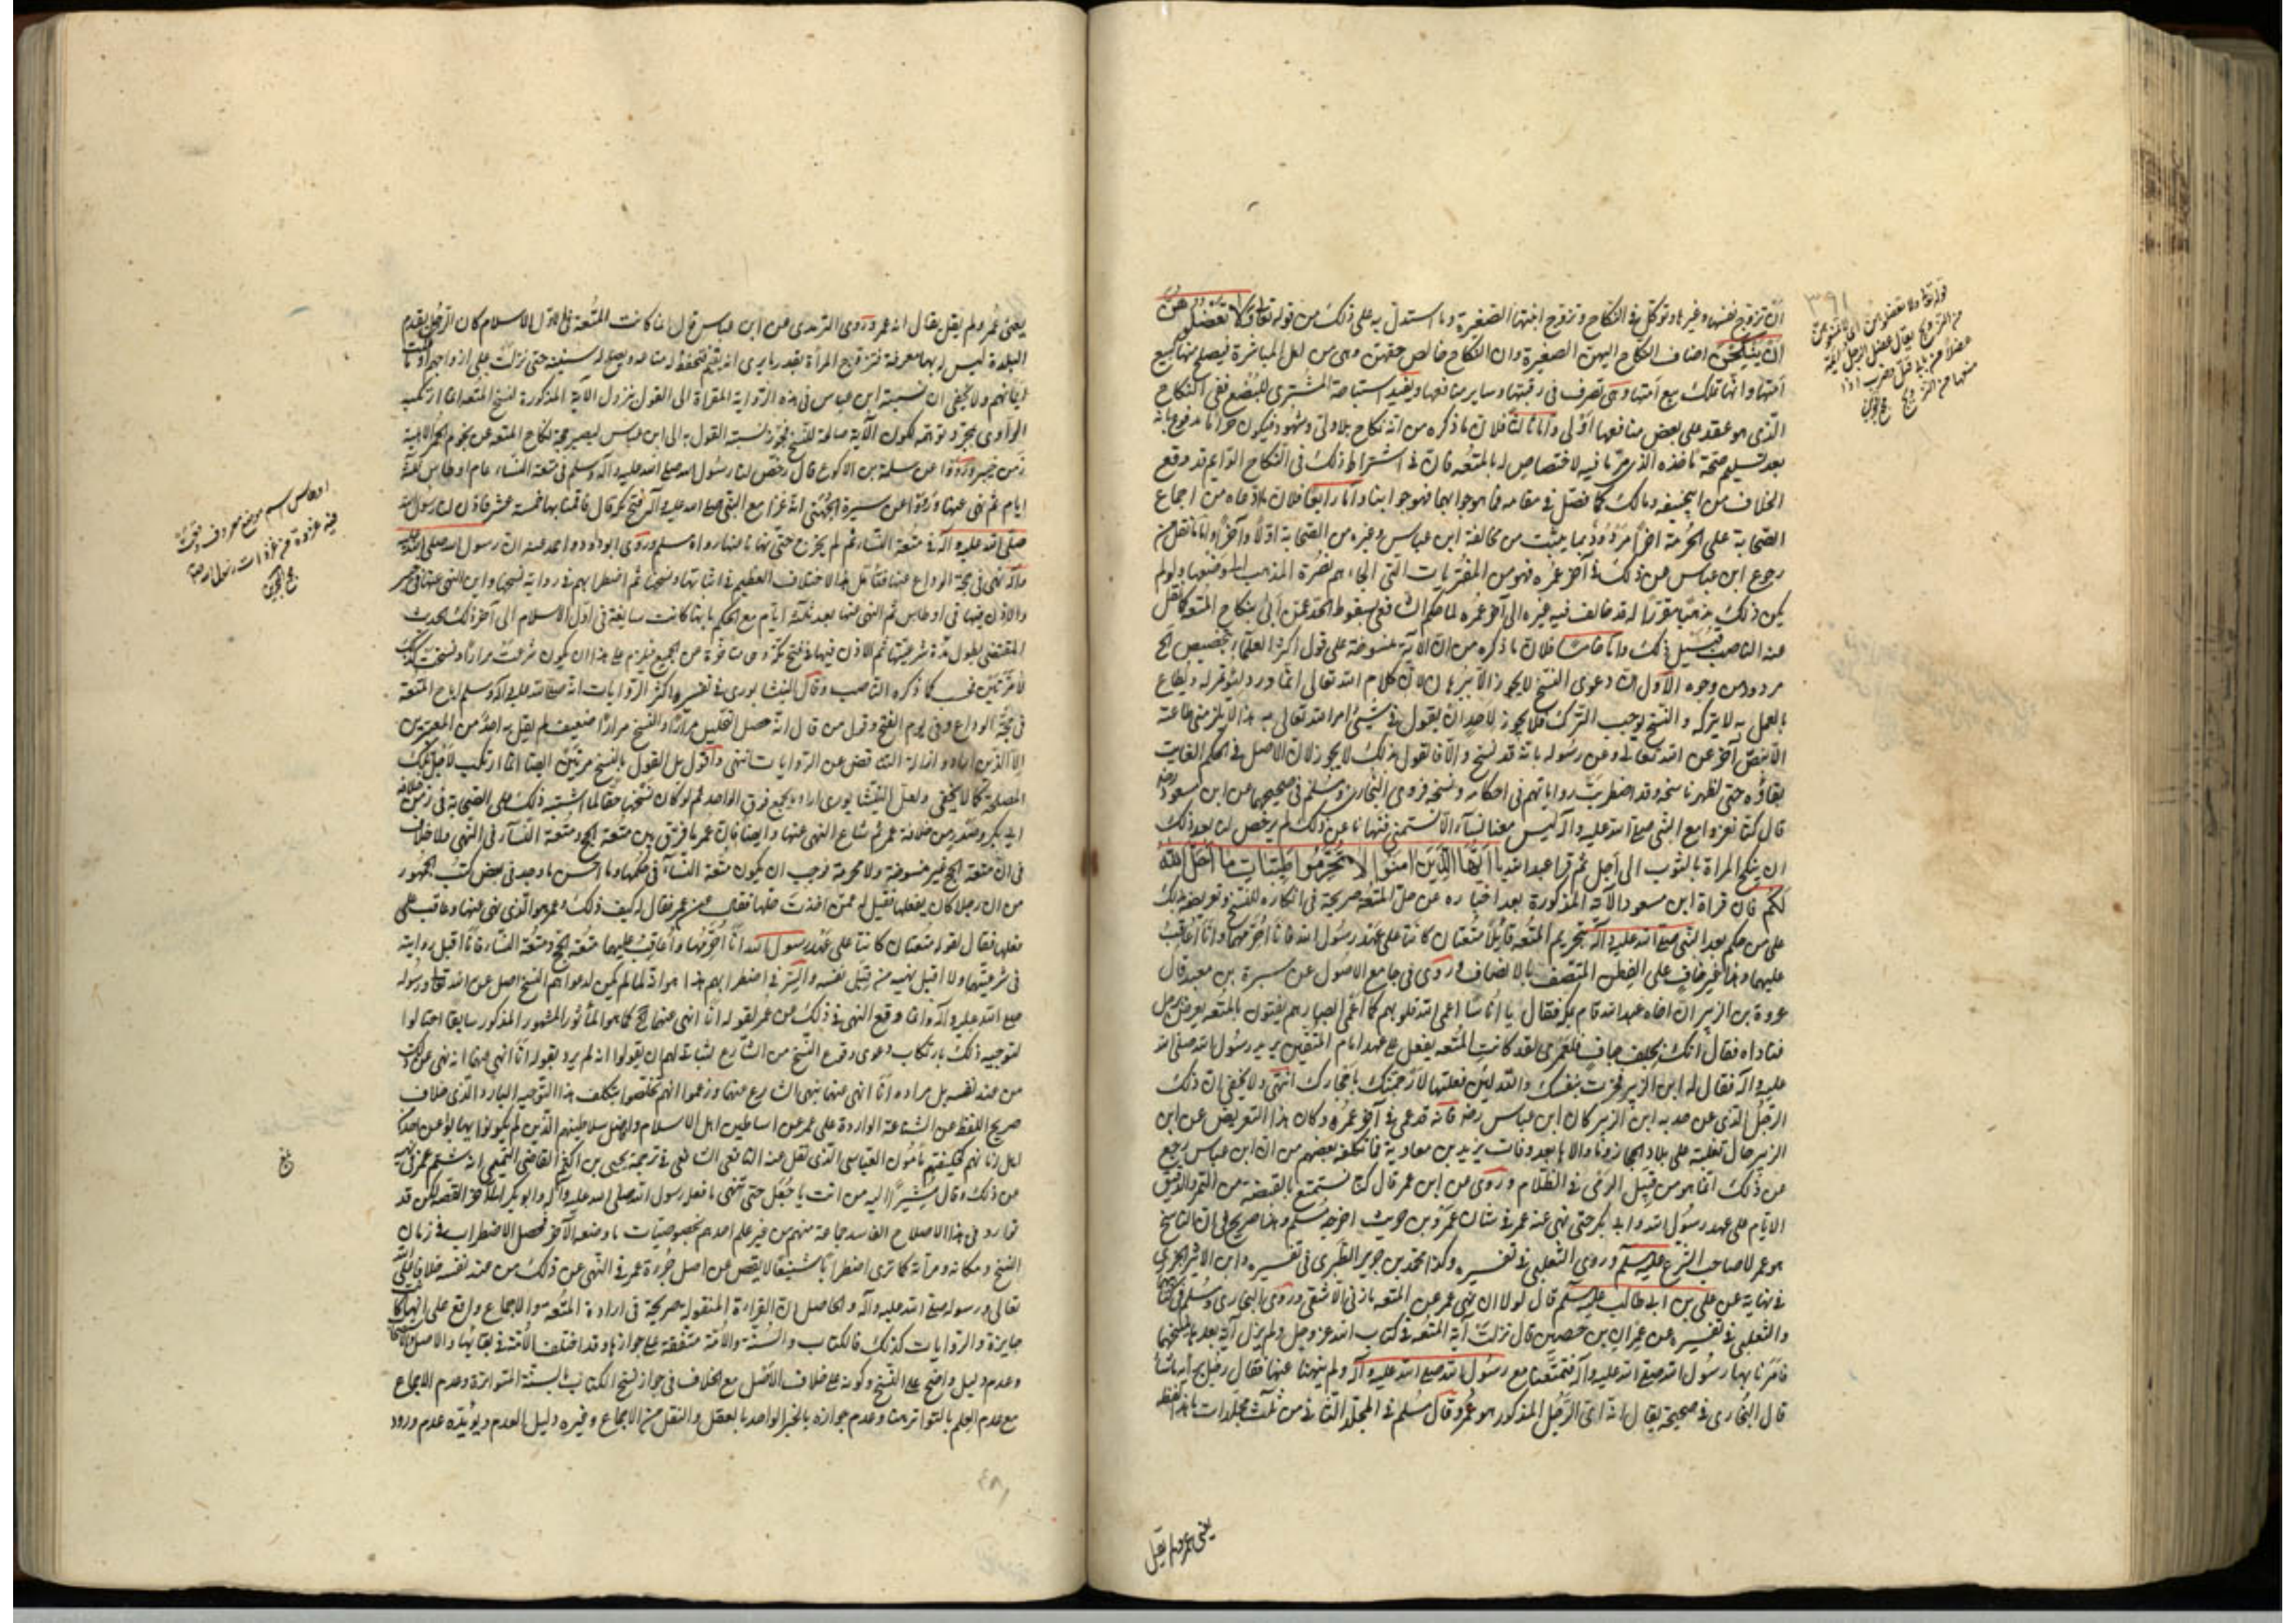 ان تزوج نفسها وغيرها وتوكل في النكاح وتزوج ابنتها الصغيرة وما استدل به على ذلك من قوله تعالى ولا تعضلوهن
ان ينكحن اضاف النكاح اليهن الصغيرة وان النكاح خالص حقهن وهي من اهل المباشرة فيصلح منها كبيع
امتها وانها تملك بيع امتها وهي تصرف في رقبتها وساير منافعها ويفيد استباحة المشتري للبضع ففي النكاح
الذي هو عقد على بعض منافعها اولى واما ثالثا فلان ما ذكره من انه نكاح بلا ولي وشهود فيكون حراما مدفوع بانه
بعد تسليم صحة ماخذه الذي مر ما فيه لا اختصاص له بالمتعه فان في اشتراط ذلك في النكاح الدايم قد وقع
الخلاف من ابي حنيفه ومالك كما فصل في مقامه فما هو جوابهما فهو جوابنا واما رابعا فلان ما ادعاه من اجماع
الصحابة على الحرمة اخرا مردود بما يثبت من مخالفة ابن عباس وغيره من الصحابة اولا وآخرا واما ما نقل من
رجوع ابن عباس عن ذلك في آخر عمره فهو من المفتريات التي الجاءهم نصرة المذهب الى وضعها ولو لم
يكن ذلك مذهبا مقررا له قد خالف فيه غيره الى آخر عمره لما حكم الشافعي بسقوط الحد عمن اتى بنكاح المتعه كما نقل
عنه الناصب قبيل ذلك واما خامسا فلان ما ذكره من ان الآية منسوخة على قول اكثر العلماء بتخصيص الخ
مردود من وجوه الاول ان دعوى النسخ لا يجوز الا ببرهان لان كلام الله تعالى انما ورد ليؤتمر له ويطاع
بالعمل به لا بتركه والنسخ يوجب الترك فلا يجوز لاحد ان يقول في شيء امر الله تعالى به هذا لا يلزمني طاعته
الا بنص آخر عن الله تعالى وعن رسوله بانه قد نسخ والا فالقول بذلك لا يجوز لان الاصل في الحكم الثابت
بقاؤه حتى يظهر ناسخه وقد اضطربت رواياتهم في احكامه ونسخه فروى البخاري ومسلم في صحيحيهما عن ابن مسعود
قال كنا نغزوا مع النبي صلى الله عليه وآله ليس معنا نساء الا نستمني فنهانا عن ذلك ثم رخص لنا بعد ذلك
ان ينكح المراة بالثوب الى اجل ثم قرا عبد الله يا ايها الذين امنوا لا تحرموا طيبات ما احل الله
لكم فان قراة ابن مسعود الآية المذكورة بعد اخباره عن حل المتعه صريحة في انكاره للنسخ وتعريضه بذلك
على من حكم بعد النبي صلى الله عليه وآله بتحريم المتعه قايلا متعتان كانتا على عهد رسول الله فانا احرمهما وانا اعاقب
عليهما وهذا غير خاف على الفطن المتصف بالانصاف وروى في جامع الاصول عن سبرة بن معبد قال
عروة بن الزبير ان اخاه عبد الله قام بمكة فقال يا اناسا اعمى الله قلوبهم كما اعمى ابصارهم يفتون بالمتعه يعرض برجل
فناداه فقال انك لجلف جاف فلعمري لقد كانت المتعه يفعل على عهد امام المتقين يريد رسول الله صلى الله
عليه وآله فقال له ابن الزبير فجرب بنفسك والله لئن فعلتها لارجمنك باحجارك انتهى ولا يخفى ان ذلك
الرجل الذي عرض به ابن الزبير كان ابن عباس رض فانه قد عمي في آخر عمره وكان هذا التعريض عن ابن
الزبير حال تغلبه على بلاد الحجاز وما والاها بعد وفات يزيد بن معاوية فما تكلفه بعضهم من ان ابن عباس رجع
عن ذلك انما هو من قبيل الرمي في الظلام وروى عن ابن عمر قال كنا نستمتع بالقبضة من التمر والدقيق
الايام على عهد رسول الله وابي بكر حتى نهى عنه عمر في شان عمرو بن حريث اخرجه مسلم وهذا صريح في ان الناسخ
هو عمر لا صاحب الشرع عليه السلم وروى الثعلبي في تفسيره وكذا محمد بن جرير الطبري في تفسيره وابن الاثير الجزري
في نهاية عن علي بن ابي طالب عليه السلم قال لولا ان نهى عمر عن المتعه ما زنى الا شقي وروى البخاري ومسلم في
والثعلبي في تفسيره عن عمران بن حصين قال نزلت آية المتعه في كتاب الله عز وجل ولم ينزل آية بعدها تنسخها
فامرنا بها رسول الله صلى الله عليه وآله فتمتعنا مع رسول الله صلى الله عليه وآله ولم ينهنا عنها فقال رجل برأيه ما شاء
قال البخاري في صحيحه يقال انه اي الرجل المذكور هو عمر وقال مسلم في المجلد الثاني من ثلث مجلدات
يعني عمر ولم يقل
قوله تعالى ولا تعضلوهن اي لا تمنعوهن
من التزوج يقال عضل الرجل ايمه
عضلا من باب قتل وضرب اذا
منعها من التزويج
٣٩١
يعني عمر ولم يقل يقال انه عمر وروى الترمذي عن ابن عباس قال انما كانت المتعة في اول الاسلام كان الرجل يقدم
البلدة ليس له بها معرفة فتزوج المرأة بقدر ما يرى انه يقيم فتحفظ له متاعه ويصلح له حتى نزلت الا على ازواجهم او ما ملكت
ايمانهم ولا يخفى ان نسبة ابن عباس في هذه الرواية المقراة الى القول بنزول الآية المذكورة لنسخ المتعه انما ارتكبه
الراوي بمجرد توهمه لكون الآية صالحة للنسخ فجوز نسبة القول به الى ابن عباس ليصير حجة لنكاح المتعه عن لحوم الحمر الاهلية
زمن خيبر ورووا عن سلمة بن الاكوع قال رخص لنا رسول الله صلى الله عليه وآله وسلم في متعة النساء عام اوطاس ثلثة
ايام ثم نهى عنها ورووا عن سبرة الجهني انه غزا مع النبي صلى الله عليه وآله فتح مكه قال فاقمنا بها خمسة عشر فاذن لنا رسول الله
صلى الله عليه وآله في متعة النساء ثم لم يخرج حتى نهانا عنها رواه مسلم وروى ابو داود واحمد عنه ان رسول الله صلى الله عليه
وآله نهى في حجة الوداع عنها فتأمل هذا الاختلاف العظيم في اثباتها ونسخها ثم اضطرابهم في رواية نسخها واين النهي عنها في خيبر
والاذن فيها في اوطاس ثم النهي عنها بعد ثلثة ايام مع الحكم بانها كانت سايغة في اول الاسلام الى آخر ذلك الحديث
المقتضى لطول مدة شرعيتها ثم الاذن فيها في فتح مكة وهي متاخرة عن الجميع فيلزم على هذا ان يكون شرعت مرارا ونسخت كذلك
لا مرتين فقط كما ذكره الناصب وقال النيشابوري في تفسيره اكثر الروايات انه صلى الله عليه وآله وسلم اباح المتعة
في حجة الوداع وفي يوم الفتح وقول من قال انه حصل التحليل مرارا والنسخ مرارا ضعيف لم يقل به احد من المعتبرين
الا الذين ارادوا ازالة التناقض عن الروايات انتهى واقول بل القول بالنسخ مرتين ايضا انما ارتكب لاجل تلك
المصلحة كما لا يخفى ولعل النيشابوري اراد بالجمع فوق الواحد ثم لو كان نسخها حقا لما اشتبه ذلك على الصحابة في زمن خلافة
ابي بكر وصدر من خلافة عمر ثم شاع النهي عنها وايضا فان عمر ما فرق بين متعة الحج ومتعة النساء في النهي ولا خلاف
في ان متعة الحج غير منسوخة ولا محرمة فوجب ان يكون متعة النساء في حكمها وما احسن ما وجد في بعض كتب الجمهور
من ان رجلا كان يفعلها فقيل له عمن اخذت حلها فقال عن عمر فقال له كيف ذلك وعمر هو الذي نهى عنها وعاقب على
فعلها فقال لقوله متعتان كانتا على عهد رسول الله انا احرمهما واعاقب عليهما متعة الحج ومتعة النساء فانا اقبل روايته
في شرعيتها ولا اقبل نهيه من قبل نفسه والسر في اضطرابهم هذا هو انه لما لم يكن لدعواهم النسخ اصل عن الله تعالى ورسوله
صلى الله عليه وآله وانما وقع النهي في ذلك من عمر لقوله انا انهى عنهما الخ كما هو الماثور المشهور المذكور سابقا احتالوا
لتوجيه ذلك بارتكاب دعوى وقوع النسخ من الشارع لئباتى لهم ان يقولوا انه لم يرد بقوله انا انهى عنهما انه نهى عن ذلك
من عند نفسه بل مراده انا انهى عنهما بنهي الشارع عنهما وزعموا انهم تخلصوا بتكلف هذا التوجيه البارد الذي خلاف
صريح اللفظ عن الشناعة الواردة على عمر عن اساطين اهل الاسلام وافضل سلاطينهم الذين لم يكونوا يهابون عن احد
اهل زمانهم كخليفتهم مأمون العباسي الذي نقل عنه اليافعي الشافعي في ترجمة يحيى بن اكثم القاضي التميمي انه شتم عمر
عن ذلك وقال مشيرا اليه من انت يا جعل حتى تنهى ما فعله رسول الله صلى الله عليه وآله وابو بكر الى آخر القصه لكن قد
توارد في هذا الاصلاح الفاسد جماعة منهم من غير علم احدهم بخصوصيات ما وضعه الآخر فحصل الاضطراب في زمان
النسخ ومكانه ومرأته كما ترى اضطرابا شنيعا لا ينقص عن اصل جرءة عمر في النهي عن ذلك من عند نفسه خلافا لله
تعالى ورسوله صلى الله عليه وآله والحاصل ان القراءة المنقوله صريحة في ارادة المتعة والاجماع واقع على انها كانت
جايزة والروايات كذلك فالكتاب والسنة والامة متفقة على جوازها وقد اختلف الامة في بقائها والاصل
وعدم دليل واضح على النسخ وكونه على خلاف الاصل مع الخلاف في جواز نسخ الكتاب بالسنة المتواترة وعدم الاجماع
مع عدم العلم بالتواتر هنا وعدم جوازه بالخبر الواحد بالعقل والنقل من الاجماع وغيره دليل العدم ويؤيده عدم ورود
اوطاس اسم موضع معروف وقعت
فيه غزوة من غزوات رسول الله